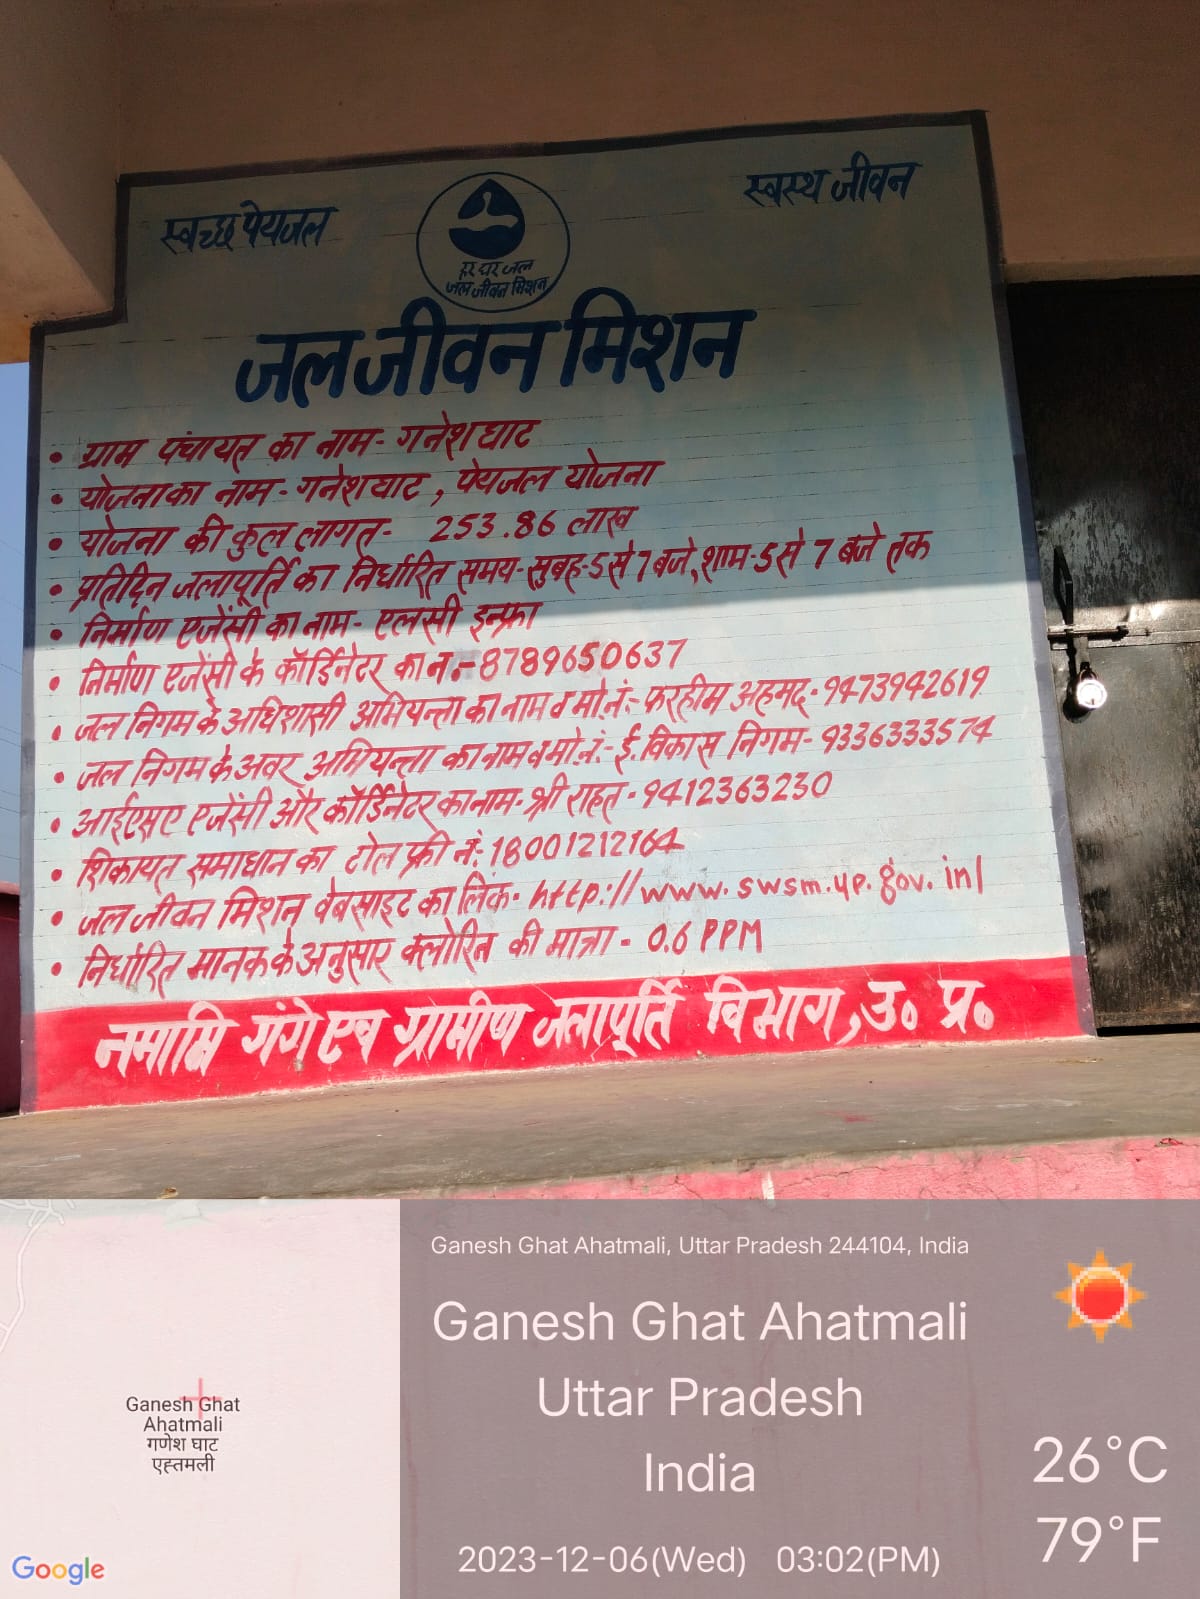 स्वच्छ पेयजल
स्वस्थ जीवन
हर घर जल
जल जीवन मिशन
जल जीवन मिशन
• ग्राम पंचायत का नाम- गनेश घाट
• योजना का नाम- गनेश घाट, पेयजल योजना
• योजना की कुल लागत- 253.86 लाख
• प्रतिदिन जलापूर्ति का निर्धारित समय- सुबह-5 से 7 बजे, शाम-5 से 7 बजे तक
• निर्माण एजेंसी का नाम- एलसी इन्फ्रा
• निर्माण एजेंसी के कॉर्डिनेटर का न.- 8789650637
• जल निगम के अधिशासी अभियन्ता का नाम व मो.नं:- फरहीम अहमद- 9473942619
• जल निगम के अवर अभियन्ता का नाम व मो.नं:- ई. विकास निगम- 9336333574
• आईएसए एजेंसी और कॉर्डिनेटर का नाम- श्री राहत - 9412363230
• शिकायत समाधान का टोल फ्री नं:- 18001212164
• जल जीवन मिशन वेबसाइट का लिंक- http://www.swsm.up.gov.in/
• निर्धारित मानक के अनुसार क्लोरिन की मात्रा - 0.6 PPM
नमामि गंगे एव ग्रामीण जलापूर्ति विभाग, उ० प्र०
Ganesh Ghat Ahatmali, Uttar Pradesh 244104, India
Ganesh Ghat Ahatmali
Uttar Pradesh
India
2023-12-06(Wed) 03:02(PM)
26°C
79°F
Ganesh Ghat
Ahatmali
गणेश घाट
एह्तमली
Google